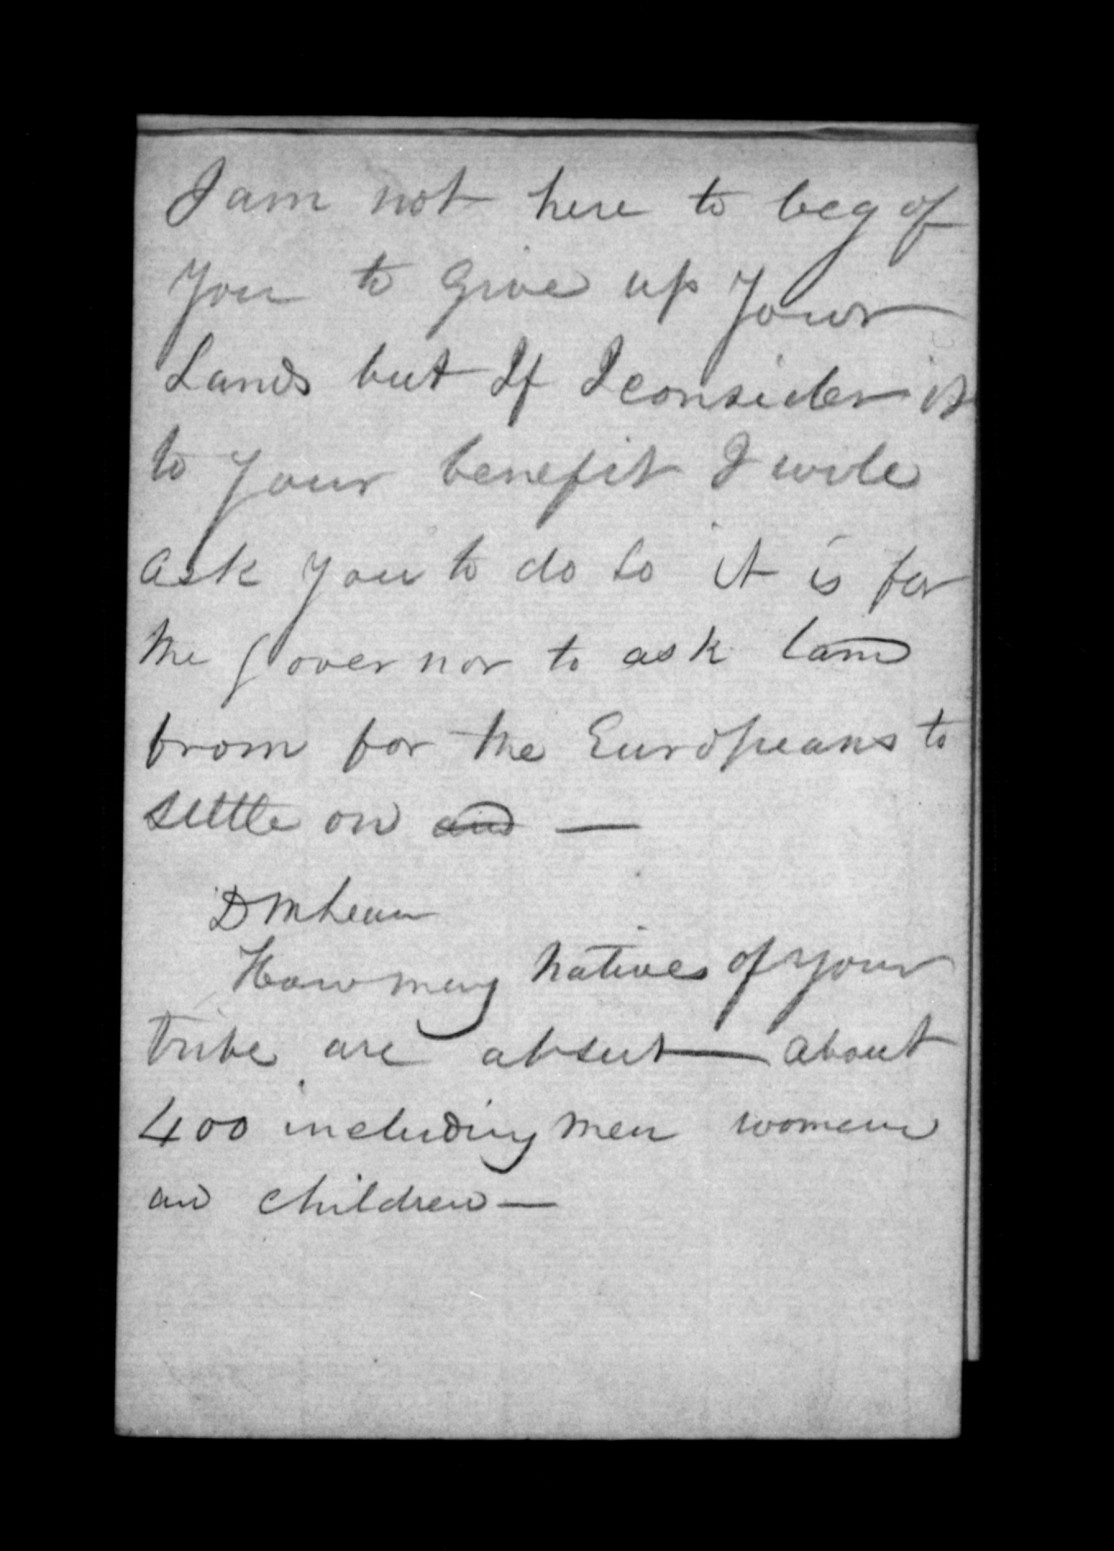 I am not here to beg of
you to give up your
Lands but If I consider it
to your benefit I will
ask you to do so it is for
the Governor to ask land
from for the Europeans to
settle on and —
D McLean
How many natives of your
tribe are absent — about
400 including men women
and children —